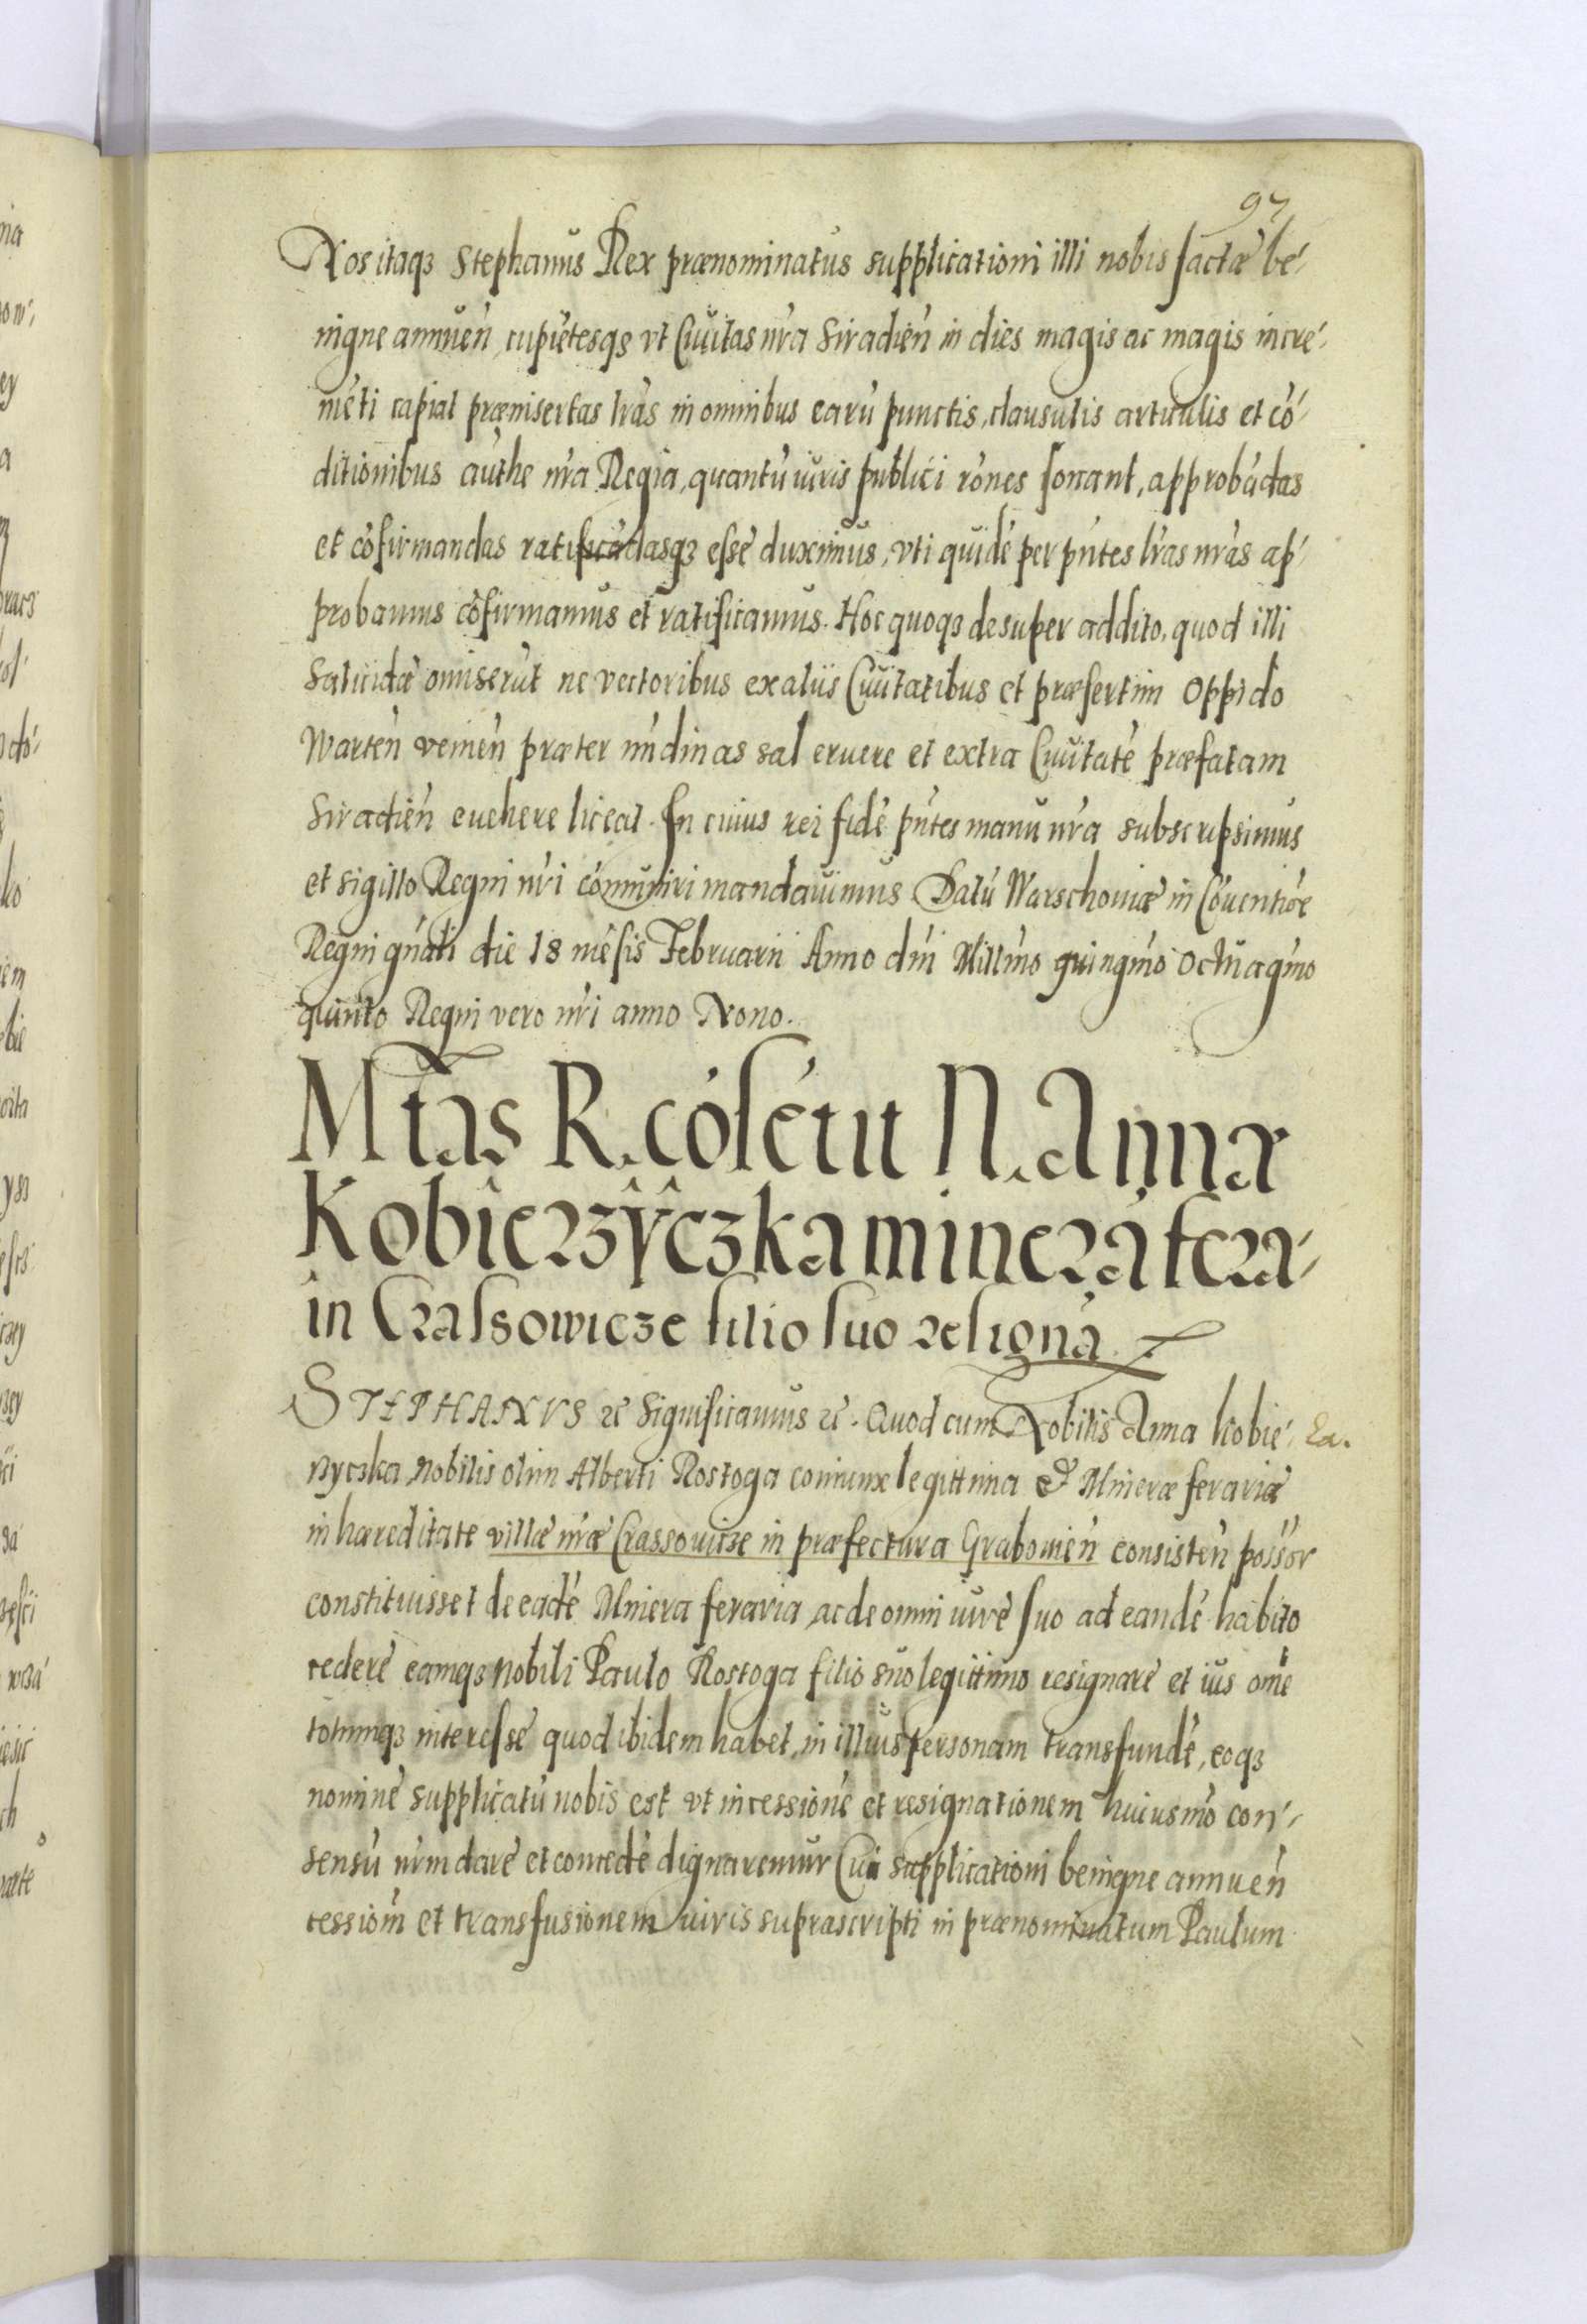 97
Nos itaqȝ Stephanus Rex prænominatus supplicationi illi nobis factæ be-
nigne annuen̄, cupiētesqȝ vt Ciuitas nr̄a Siradien̄ in dies magis ac magis incre-
mēti capiat præinsertas lr̄as in omnibus earū punctis, clausulis articulis et cō-
ditionibus authe nr̄a Regia, quantū iuris publici rōnes sonant, approbādas
et cōfirmandas ratificādasqȝ esse duximus, vti quidē per pn̄tes lr̄as nr̄as ap-
probamus cōfirmamus et ratificamus. Hoc quoqȝ desuper addito, quod illi
Salicidæ omiserūt ne vectoribus ex aliis Ciuitatibus et præsertim Oppido
Warten̄ venien̄ præter nūdinas sal eruere et extra Ciuitatē præfatam
Siradien̄ euehere liceat. In cuius rei fidē pn̄tes manu nr̄a subscripsimus
et sigillo Regni nr̄i cōmuniri mandauimus. Datū Warschouiæ in Cōuentiōe
Regni gn̄ali die 18 mēsis Februarii Anno dn̄i Millm̄o quingm̄o Octuagm̄o
quinto Regni vero nr̄i anno Nono.
Mtas R. cōsētit N. Annæ
Kobierzyczka minerā fera-
in Crassowicze filio suo resignā.
STEPHANVS ꝛc Significamus ꝛc. Quod cum Nobilis Anna Kobie- La.
rzyczka Nobilis olim Alberti Rostoga coniunx legittima et Mineræ ferariæ
in hæreditate villæ nr̄æ Crassouicze in præfectura Grabouien̄ consisten̄ possor
constituisset de eadē Minera feraria, ac de omni iure suo ad eandē habito
cedere eamqȝ Nobili Paulo Rostoga filio suo legittimo resignare et ius om̄e
totumqȝ interesse quod ibidem habet, in illius personam transfundē, eoqȝ
nomine supplicatū nobis est vt in cessionē et resignationem huiusm̄o con-
sensū nr̄m dare et concedē dignaremur Cui supplicationi benigne annuen̄
cessiom̄ et transfusionem iuris suprascripti in prænominatum Paulum